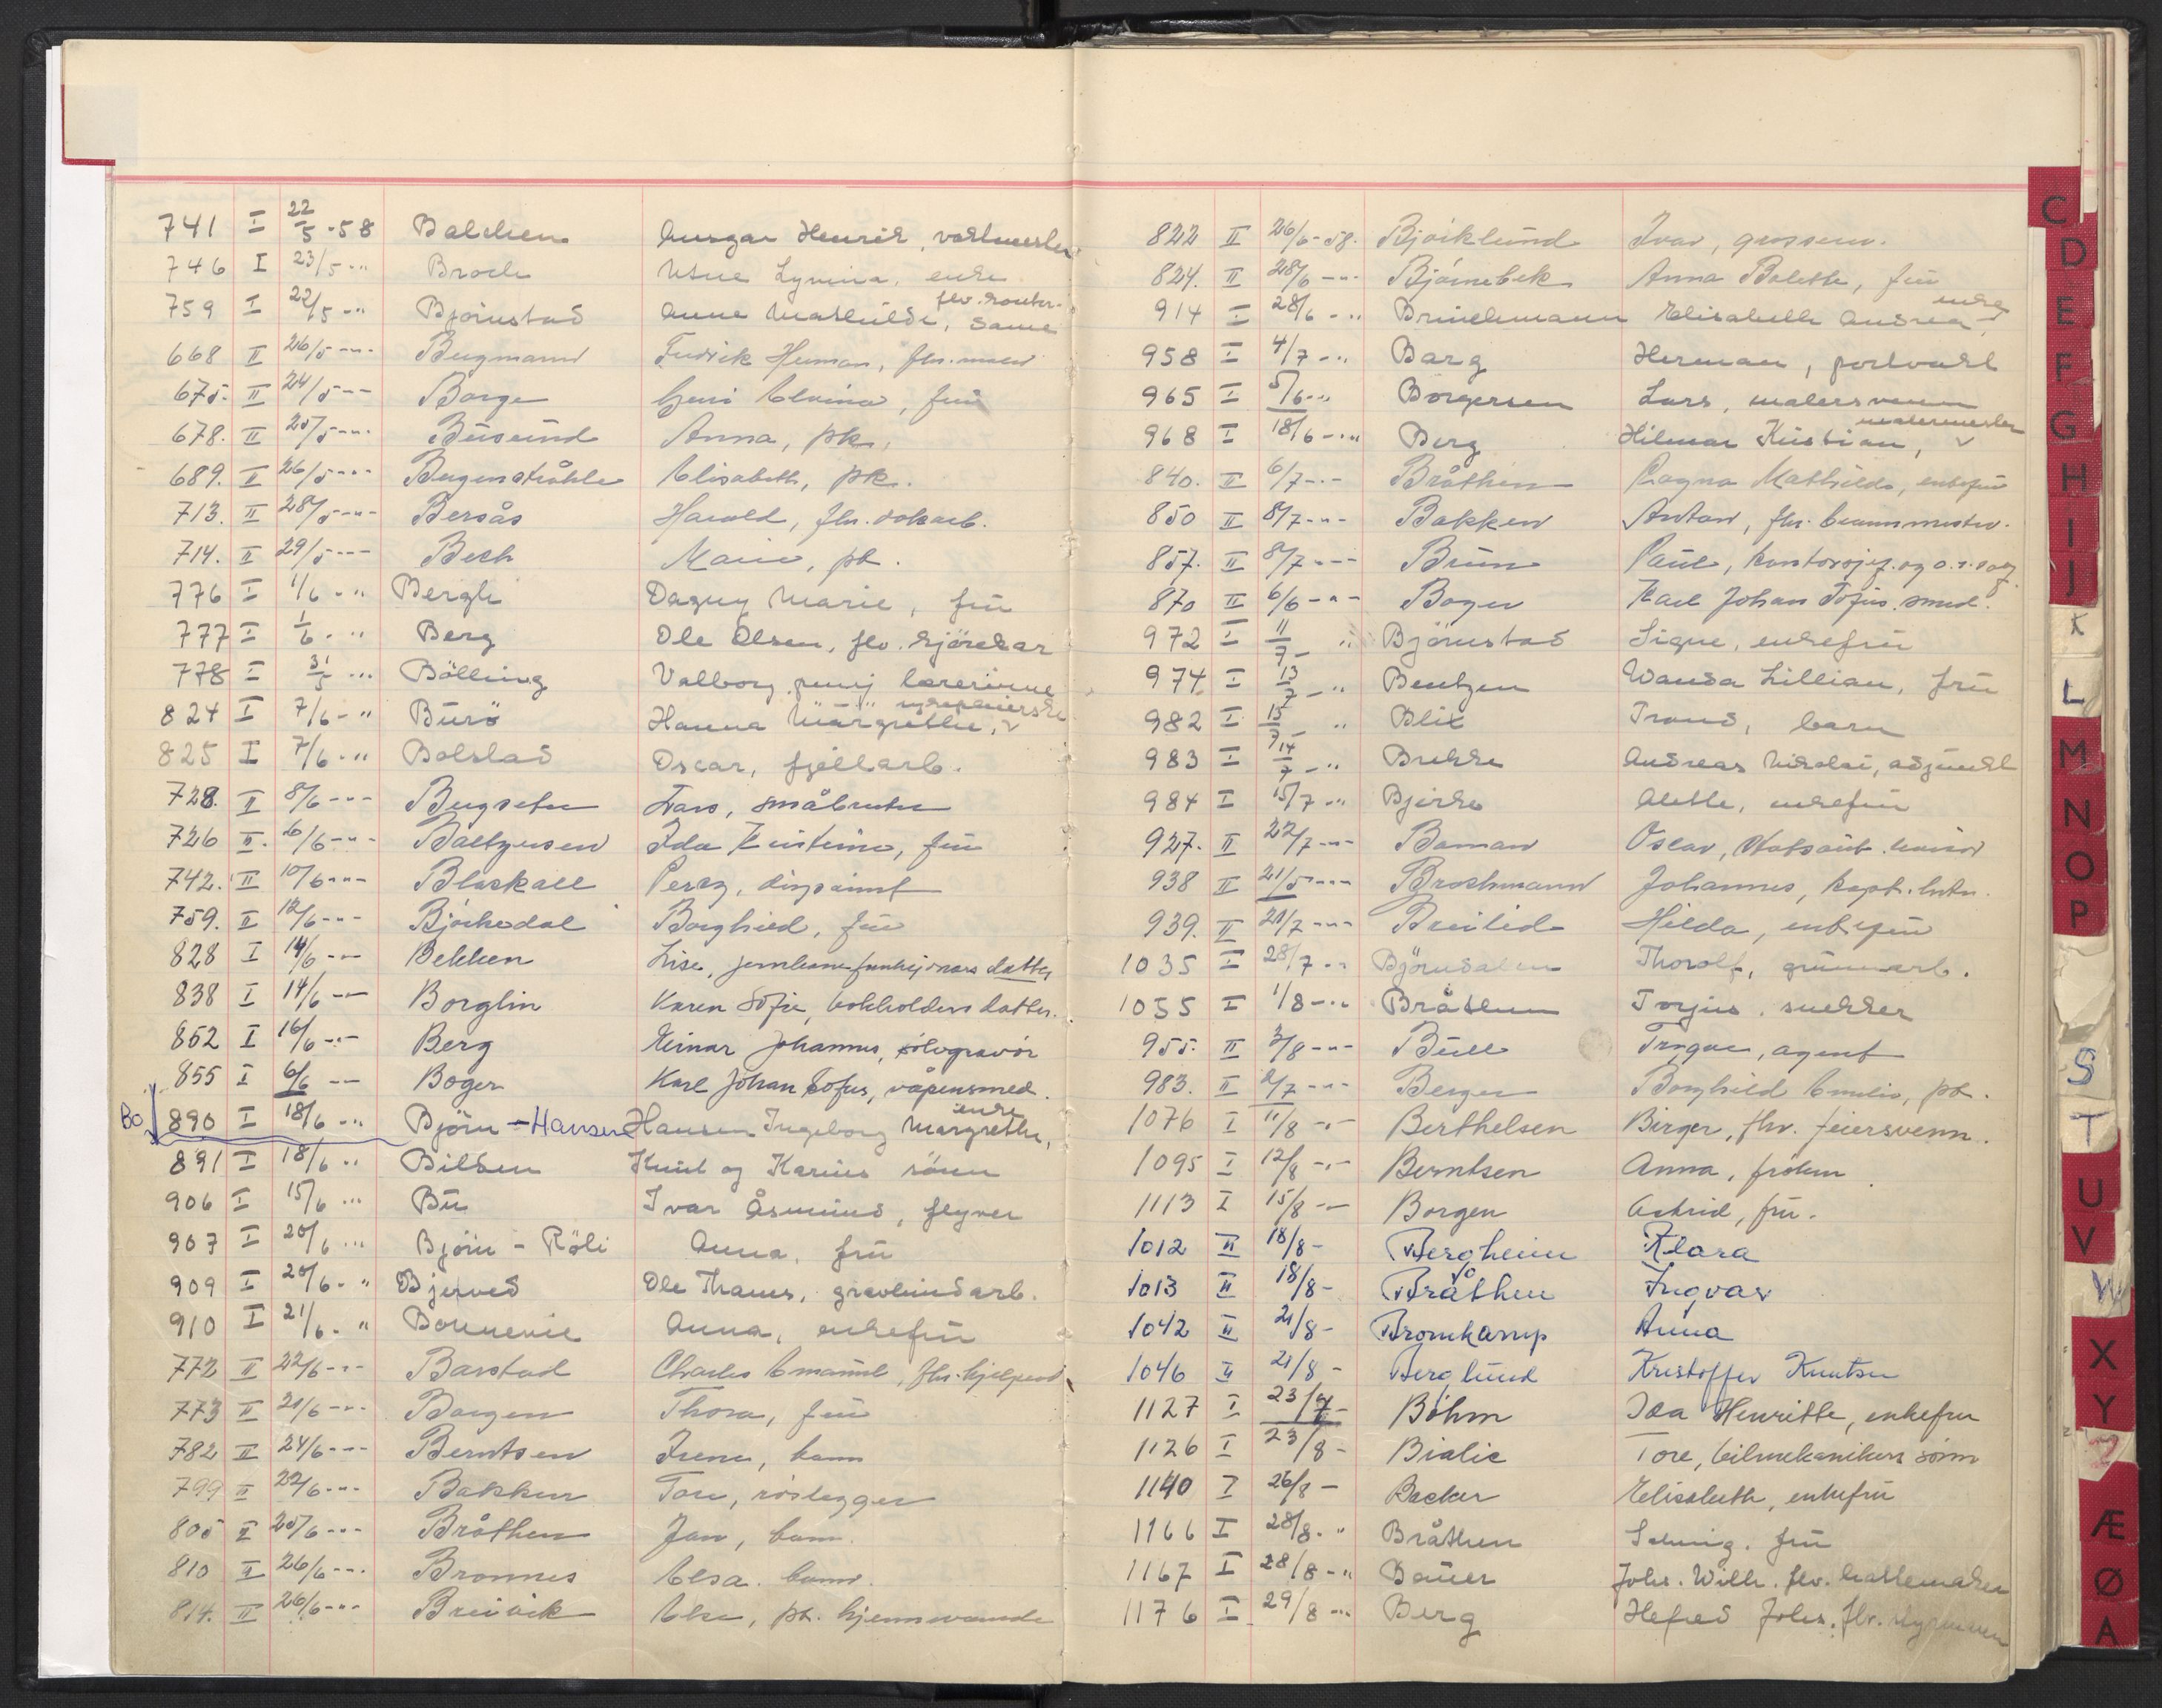 741 I 22/5-58 Balchen Ansgar Henrik, vaktmester
746 I 23/5-" Broch Lymina, enke
759 I 22/5-" Björnstad Anna Mathilde, flv. kontor- dame
668 II 26/5-"- Bergmann Fredrik Herman, fhv. maler
675. II 24/5-- Borge Elvina, frü
678. II 25/5-"- Büsünd Anna, pk.
689. II 26/5-"- Bergenstråhle Elisabeth, pk.
713. II 28/5-"- Bersås Harald, fhv. dokarb.
714. II 29/5-"- Bech Marie, pk.
776 I 1/6-" Bergli Dagny Marie, frü
777 I 1/6-" Berg Ole Olsen, flv. kjörekar
778 I 31/5-" Bölling Valborg pensj. lærerinne
824 I 7/6-" Bürö Hanna Margrethe, syeplerske
825 I 7/6-" Bolstad Oscar, fjellarb.
728. II 8/6-"- Bergseter Lars, småbruker
726 II. 6/6-"- Baltzersen Ida Kristine, frü
742. II 10/6-"- Blackall Percy, disponent
759. II 12/6-"- Björkedal Borghild, frü
828 I 14/6-"- Bekken Lise, jernbanefunksjonærs datter
838 I 14/6-"- Borglin Karen Sofie, bokholders datter.
852 I 16/6-"- Berg Einar Johannes, sölvgravör
855 I 6/6-"- Boger Karl Johan Sofus, våpensmed.
Bo 890 I 18/6-" Björn-Hansen Hansen Ingeborg Margrethe, enke
891 I 18/6-" Bilben Knut og Karins sönn
906 I 15/6-" Bü Ivar Åsmünd, flyver
907 I 20/6-" Björn-Röli Anna, frü
909 I 20/6-" Bjerved Ole Thanes, gravlundsarb.
910 I 21/6-" Bonnevie Anna, enkefrü
772 II 22/6-"- Barstad Charles Emanuel, fhv.
773 II 21/6-"- Borgen Thora, frü
782 II 24/6-"- Berntsen Irene, barn
799 II 22/6-"- Bakken Tore, rörlegger
805 II 25/6-"- Bråthen Jan, barn.
810 II 26/6-"- Bronnes Elsa. barn.
814. II 26/6-"- Breivik Else, pk. hjemmeværende
822 II 26/6-58. Björklünd Ivar, grosserer.
824. II 28/6-"- Björnebek Anna Bolette, frü
914 I 28/6-" Brinchmann Elisabeth Andrea, enke
958 I 4/7-" Barg Herman, portvakt
965 I 5/6-" Borgersen Lars, malersvenn
968 I 18/6-" Berg Hilmar Kristian, malermester
840. II 6/7-"- Bråthen Ragna Mathilde, enkefrü
850 II 8/7-"- Bakken Anton, fhv. brannmester.
857. II 8/7-"- Brün Paül, kontorsjef. og o.r.sakf.
870 II 6/6-"- Boger Karl Johan Sofus. smed.
972 I 11/7-" Björnstad Signe, enkefrü
974 I 13/7-" Bentzen Wanda Lillian, frü
982 I 15/7-" Blix Trond, barn
983 I 14/7-" Brekke Andreas Nikolai, adjünkt
984 I 15/7-" Bjerke Alette, enkefrü
927. II 22/7-"- Boman Oscar,
938 II 21/5-"- Brochmann Johannes, kapt.
939. II 21/7-"- Breilid Hilda, enkefrü
1035 I 28/7-" Björndalen Thorolf, grünnarb.
1055 I 1/8-" Bråthen Torjus, snekker
955. II 3/8-"- Büll Trygve, agent
983. II 2/7-"- Berger Borghild Emilie, pk.
1076 I 11/8-"- Berthelsen Birger, fhv. feiersvenn.
1095 I 12/8-"- Berntsen Anna, fröken
1113 I 15/8-"- Borgen Astrid, frü.
1012 II 18/8- Bergheim Klara
1013 II 18/8- Bråthen Ingvar
1042 II 21/8- Bromkamp Anna
1046 II 21/8- Berglund Kristoffer Knutsen
1127 I 23/7- Böhm Ida Henriette, enkefru
1126 I 23/8- Bialic Tore, bilmekanikers sönn
1140 I 26/8- Backer Elisabeth, enkefrü
1166 I 28/8-" Bråthen Solveig. frü
1167 I 28/8-" Bauer Johs. Wilh. flv. hattemaker
1176 I 29/8-" Berg Johs. flv. styrmann
C
D
E
F
G
H
I
J
K
L
M
N
O
P
S
T
U
V
W
X
Y
Z
Æ
Ø
A